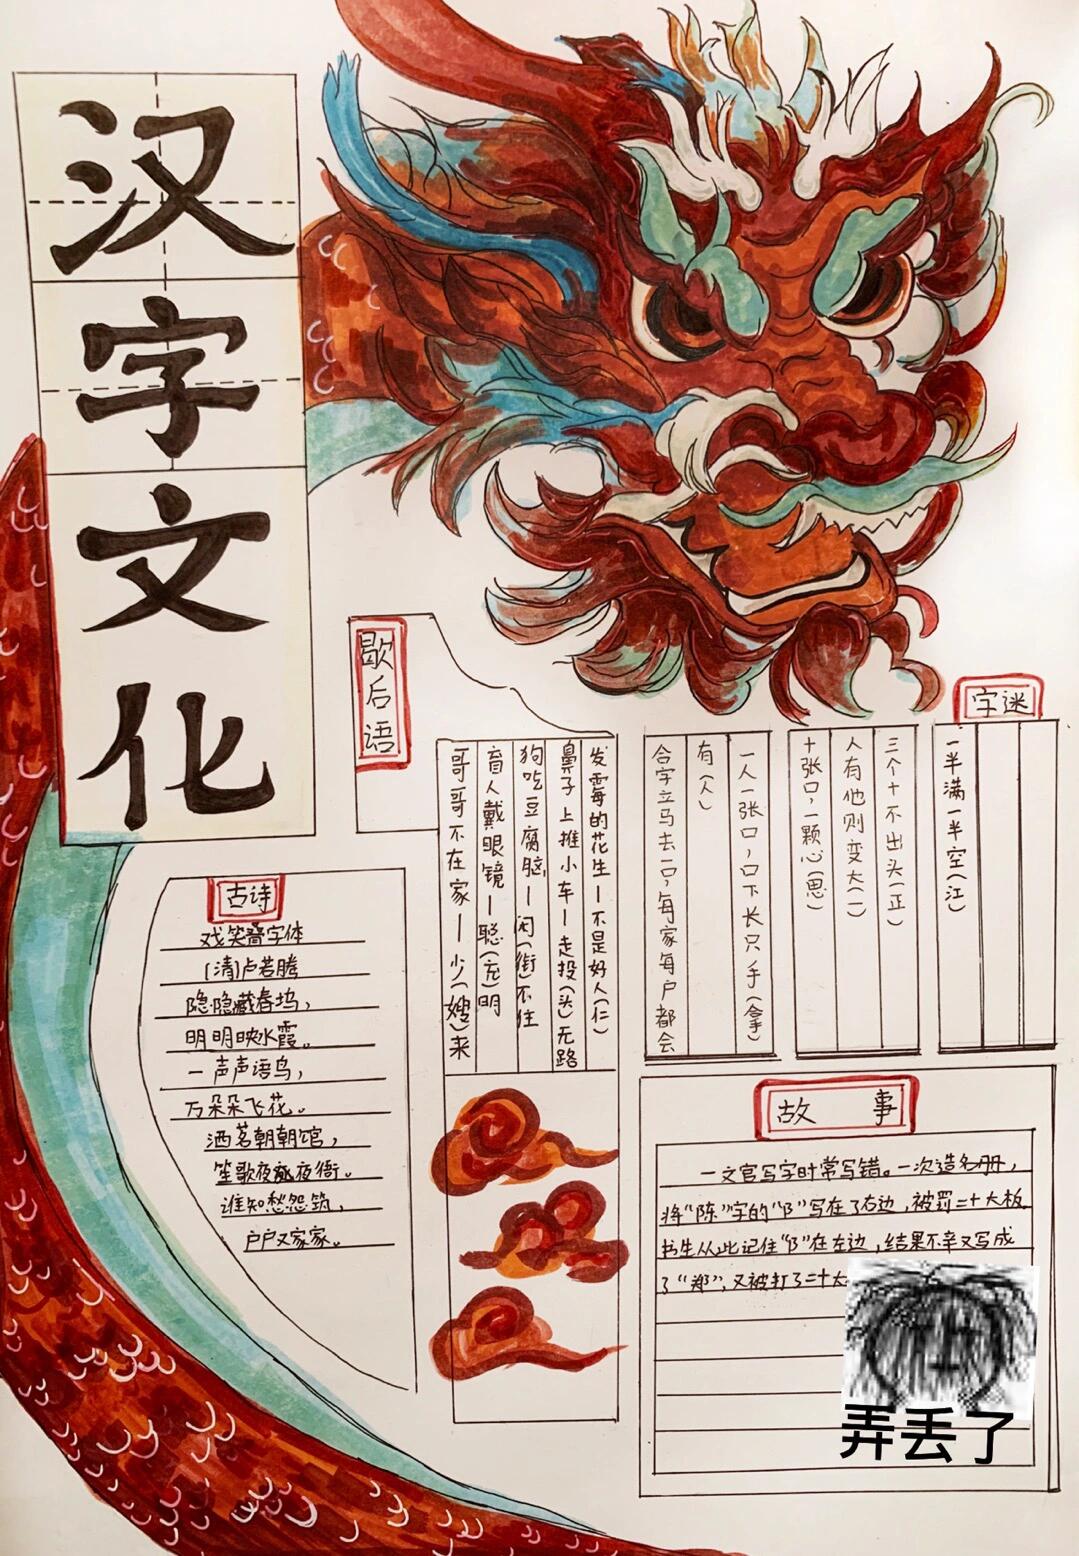 汉字文化
歇后语
发霉的花生—不是好人(仁)
鼻子上推小车—走投(头)无路
狗吃豆腐脑—闲(衔)不住
盲人戴眼镜—聪(充)明
哥哥不在家—少(嫂)来
字迷
一半满一半空(江)
三个十不出头(正)
人有他则变大(一)
十张口,一颗心(思)
一人一张口,口下长只手(拿)
有(人)
合字立马去一口,每家每户都会
古诗
戏笑叠字体
(清)卢若腾
隐隐藏春坞,
明明映水霞。
一声声语鸟,
万朵朵飞花。
酒茗朝朝馆,
笙歌夜夜衙。
谁知愁怨筑,
户户又家家。
故事
一文官写字时常写错。一次造名册,
将“陈”字的“阝”写在了右边,被罚二十大板.
书生从此记住“阝”在左边,结果不幸又写成
了“郑”,又被打了二十大
弄丢了